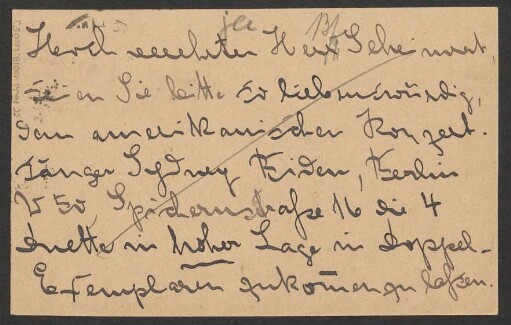 Hochverehrter Herr Geheimrat,
seien Sie bitte so liebenswürdig,
dem amerikanischen Konzert-
sänger Sydney Biden, Berlin
W 50, Spichernstraße 16 die 4
Duette in hoher Lage in Doppel-
Exemplaren zukom̅en zu laßen.